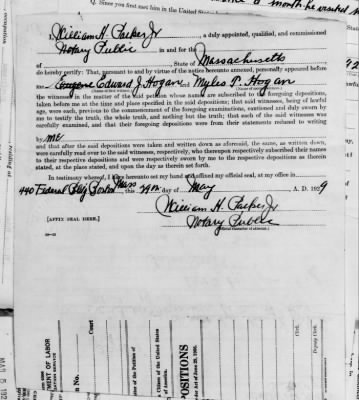 Q. Since you first met him in the United States
I, William H. Parker Jr, a duly appointed, qualified, and commissioned
Notary Public in and for the
of , State of Massachusetts
do hereby certify: That, pursuant to and by virtue of the notice hereunto annexed, personally appeared before
me Eugene Edward J. Hogan and Myles P. Hogan
the witnesses in the matter of the said petition whose names are subscribed to the foregoing depositions,
taken before me at the time and place specified in the said depositions; that said witnesses, being of lawful
age, were each, previous to the commencement of the foregoing examinations, cautioned and duly sworn by
me to testify the truth, the whole truth, and nothing but the truth; that each of the said witnesses was
carefully examined, and that their foregoing depositions were from their statements reduced to writing
by me
and that after the said depositions were taken and written down as aforesaid, the same, as written down,
were carefully read over to the said witnesses, respectively, who thereupon respectively subscribed their names
to their respective depositions and were respectively sworn by me to the respective depositions as therein
stated, at the place stated, and upon the day as therein set forth.
In testimony whereof, I have hereunto set my hand and affixed my official seal, at my office in
440 Federal Bldg Boston Mass this 29th day of May A. D. 1929
William H. Parker Jr
Notary Public
[AFFIX SEAL HERE.]
(Official character of attestor.)
MENT OF LABOR
No.
Court
In the matter of the Petition of
a Citizen of the United States
of America.
POSITIONS
Act of June 29, 1906.
Clerk.
Deputy Clerk.